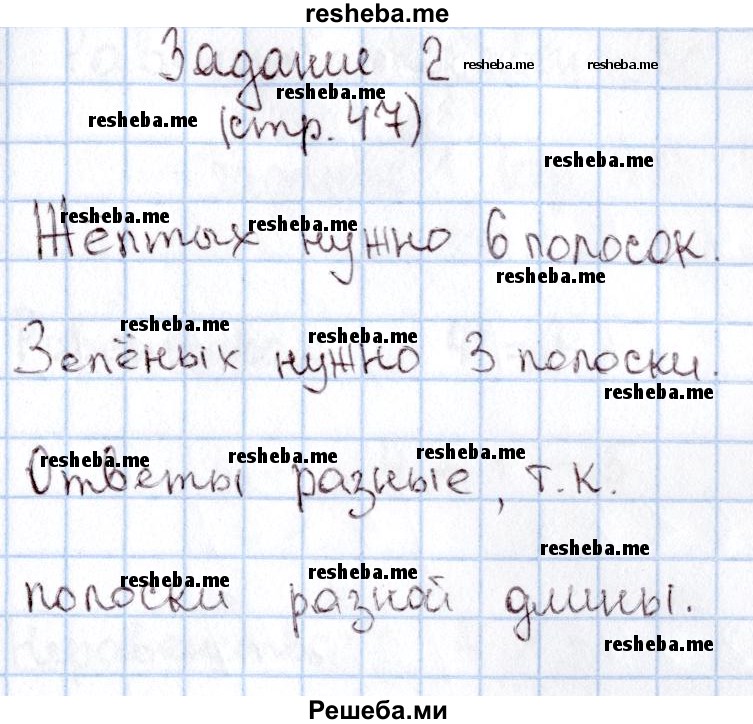 resheba.me
Задание 2 resheba.me resheba.me
resheba.me
resheba.me (стр. 47)
resheba.me
resheba.me resheba.me
Желтых нужно 6 полосок.
resheba.me
resheba.me resheba.me
Зелёных нужно 3 полоски.
resheba.me
resheba.me resheba.me resheba.me
Ответы разные, т.к.
resheba.me
resheba.me resheba.me
полоски разной длины.
resheba.me
Решеба.ми